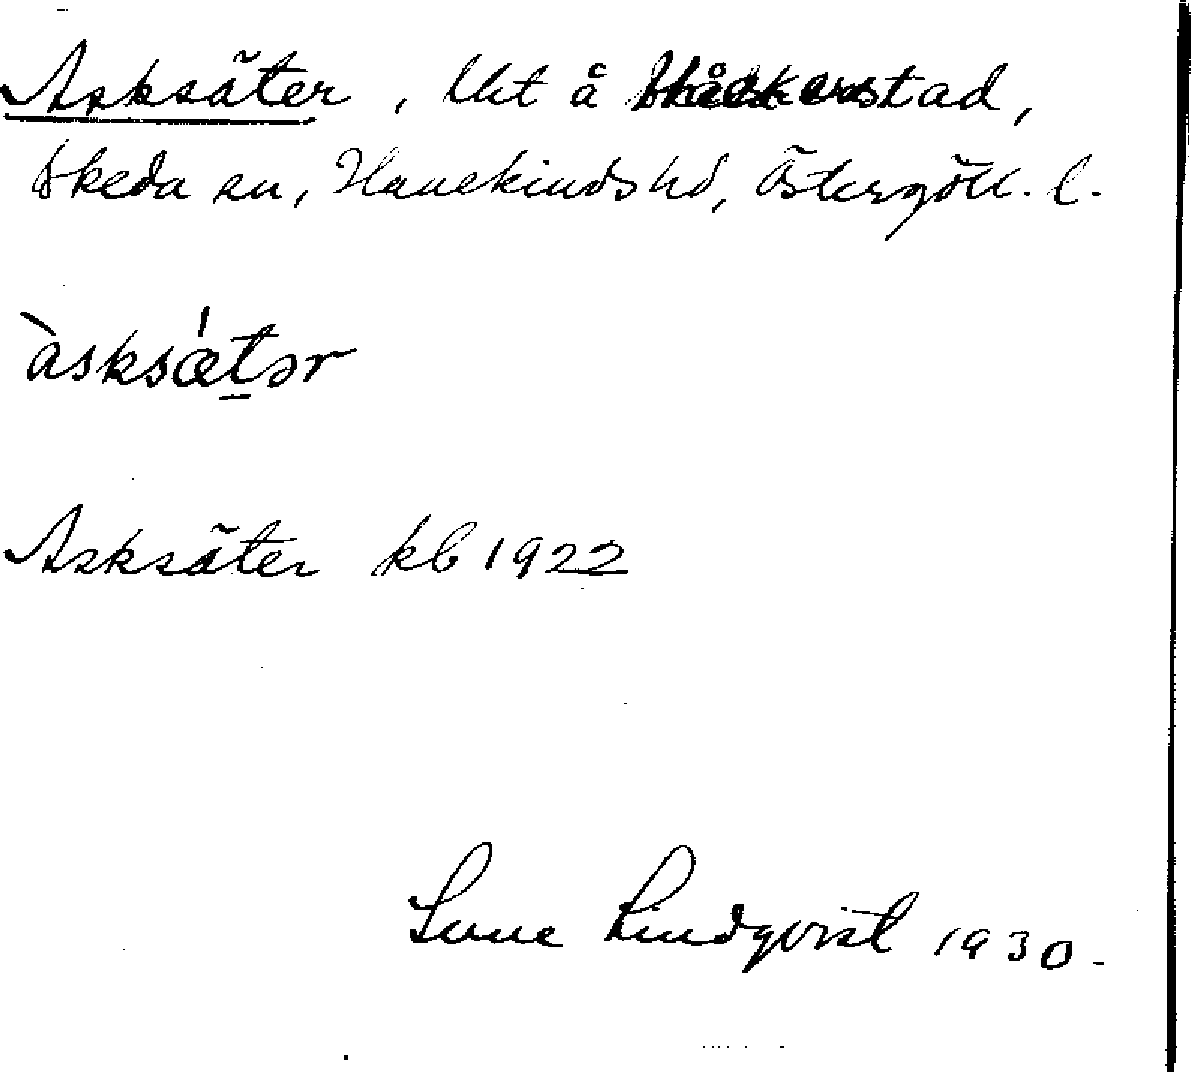 Asksäter, Utt å Skackerstad,
Skeda sn, Hanekinds hd, Östergötl. l.
àsksǽt̠ər
Asksäter kb 1922
Sune Lindqvist 1930.